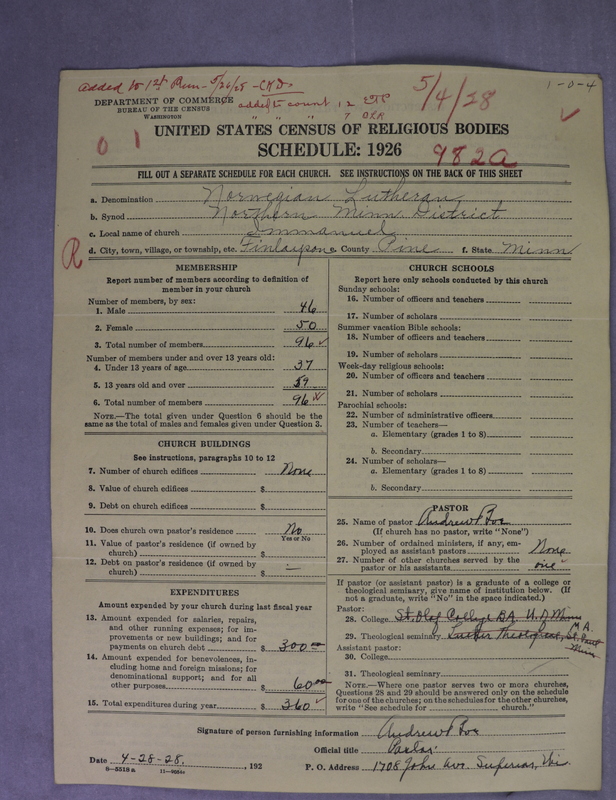 added to 1st Run - 5/26/28 - CMD.
DEPARTMENT OF COMMERCE
BUREAU OF THE CENSUS
WASHINGTON
added to count 12
" " " 7
5/4/28
1-0-4
0 1
UNITED STATES CENSUS OF RELIGIOUS BODIES
SCHEDULE: 1926
982a
FILL OUT A SEPARATE SCHEDULE FOR EACH CHURCH. SEE INSTRUCTIONS ON THE BACK OF THIS SHEET
a. Denomination Norwegian Lutheran
b. Synod Northern Minn District
c. Local name of church Immanuel
R
d. City, town, village, or township, etc. Finlayson e. County Pine f. State Minn
MEMBERSHIP
Report number of members according to definition of
member in your church
Number of members, by sex:
1. Male 46
2. Female 50
3. Total number of members 96 ✓
Number of members under and over 13 years old:
4. Under 13 years of age 37
5. 13 years old and over 59
6. Total number of members 96
NOTE.—The total given under Question 6 should be the
same as the total of males and females given under Question 3.
CHURCH BUILDINGS
See instructions, paragraphs 10 to 12
7. Number of church edifices None
8. Value of church edifices $
9. Debt on church edifices $
10. Does church own pastor's residence No
Yes or No
11. Value of pastor's residence (if owned by
church) $
12. Debt on pastor's residence (if owned by
church) $ —
EXPENDITURES
Amount expended by your church during last fiscal year
13. Amount expended for salaries, repairs,
and other running expenses; for im-
provements or new buildings; and for
payments on church debt $ 300.00
14. Amount expended for benevolences, in-
cluding home and foreign missions; for
denominational support; and for all
other purposes $ 60.00
15. Total expenditures during year $ 360 ✓
CHURCH SCHOOLS
Report here only schools conducted by this church
Sunday schools:
16. Number of officers and teachers
17. Number of scholars
Summer vacation Bible schools:
18. Number of officers and teachers
19. Number of scholars
Week-day religious schools:
20. Number of officers and teachers
21. Number of scholars
Parochial schools:
22. Number of administrative officers
23. Number of teachers—
a. Elementary (grades 1 to 8)
b. Secondary
24. Number of scholars—
a. Elementary (grades 1 to 8)
b. Secondary
PASTOR
25. Name of pastor Andrew
(If church has no pastor, write "None")
26. Number of ordained ministers, if any, em-
ployed as assistant pastors None
27. Number of other churches served by the
pastor or his assistants one
If pastor (or assistant pastor) is a graduate of a college or
theological seminary, give name of institution below. (If
not a graduate, write "No" in the space indicated.)
Pastor:
28. College St. Olaf College B.A. U. of Minn M.A.
29. Theological seminary Luther Theological, St. Paul Minn
Assistant pastor:
30. College
31. Theological seminary
NOTE.—Where one pastor serves two or more churches,
Questions 28 and 29 should be answered only on the schedule
for one of the churches; on the schedules for the other churches,
write "See schedule for church."
Signature of person furnishing information Andrew
Official title Pastor
Date 4-28-28, 192
P. O. Address 1708 John Ave. Superior, Wis.
8—5518a 11—9564c